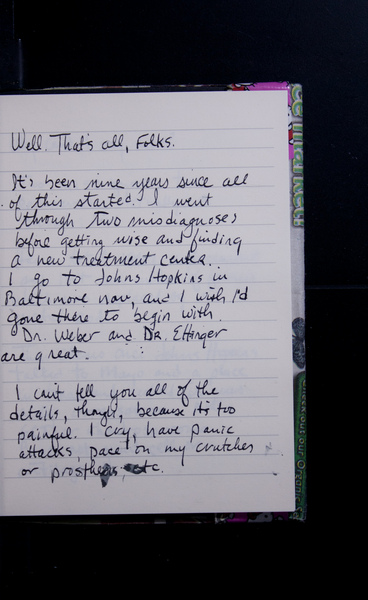 Well. That's all, Folks.
It's been nine years since all
of this started. I went
through two misdiagnoses
before getting wise and finding
a new treatment center.
I go to Johns Hopkins in
Baltimore now, and I wish I'd
gone there to begin with.
Dr. Weber and Dr. Ettinger
are great.
I can't tell you all of the
details, though, because it's too
painful. I cry, have panic
attacks, pace on my crutches
or prosthesis, etc.
check out our Organic